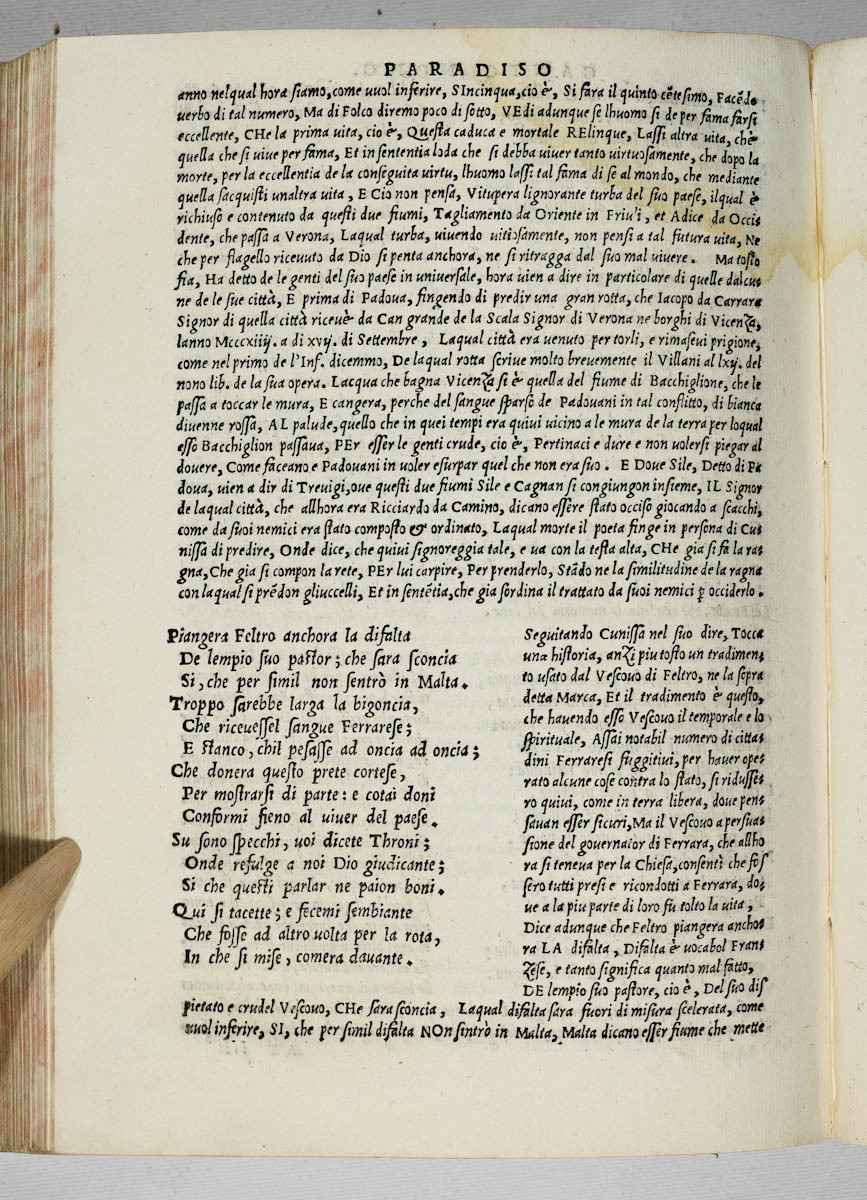 PARADISO
anno nelqual hora siamo, come vuol inferire, SIncinqua, cio è, Si fara il quinto cẽtesimo, Facẽdo
verbo di tal numero, Ma di Folco diremo poco di sotto, VEdi adunque se lhuomo si de per fama farsi
eccellente, CHe la prima vita, cio è, Questa caduca e mortale RElinque, Lassi altra vita, chè
quella che si viue per fama, Et in sententia loda che si debba viuer tanto virtuosamente, che dopo la
morte, per la eccellentia de la conseguita virtu, lhuomo lassi tal fama di se al mondo, che mediante
quella sacquisti unaltra vita, E Cio non pensa, Vitupera lignorante turba del suo paese, ilqual è
richiuso e contenuto da questi due fiumi, Tagliamento da Oriente in Friu'i, et Adice da Occi
dente, che passa a Verona, Laqual turba, viuendo uitiosamente, non pensi a tal futura vita, NE
che per flagello riceuuto da Dio si penta anchora, ne si ritragga dal suo mal viuere. Ma tosto
fia, Ha detto de le genti del suo paese in uniuersale, hora vien a dire in particolare di quelle dalcu
ne de le sue città, E prima di Padoua, fingendo di predir una gran rotta, che Iacopo da Carrara
Signor di quella città riceuè da Can grande de la Scala Signor di Verona ne borghi di Vicenza,
lanno Mcccxiiij. a di xvij. di Settembre, Laqual città era venuto per torli, e rimaseui prigione,
come nel primo de l'Inf. dicemmo, De laqual rotta scriue molto breuemente il Villani al lxij. del
nono lib. de la sua opera. Lacqua che bagna Vicenza si è quella del fiume di Bacchiglione, che le
passa a toccar le mura, E cangera, perche del sangue sparse de Padouani in tal conflitto, di bianca
diuenne rossa, AL palude, quello che in quei tempi era quiui uicino a le mura de la terra per loqual
esso Bacchiglion passaua, PEr esser le genti crude, cio è, Pertinaci e dure e non volersi piegar al
douere, Come faceano e Padouani in voler esurpar quel che non era suo. E Doue Sile, Detto di Pa
doua, vien a dir di Treuigi, oue questi due fiumi Sile e Cagnan si congiungon insieme, IL Signor
de laqual città, che allhora era Ricciardo da Camino, dicano essere stato occiso giocando a scacchi,
come da suoi nemici era stato composto & ordinato, Laqual morte il poeta finge in persona di Cu
nissa di predire, Onde dice, che quiui signoreggia tale, e va con la testa alta, CHe gia si fa la ra
gna, Che gia si compon la rete, PEr lui carpire, Per prenderlo, Stãdo ne la similitudine de la ragna
con laqual si prẽdon gliuccelli, Et in sentẽtia, che gia sordina il trattato da suoi nemici ꝑ occiderlo.
Piangera Feltro anchora la difalta
De lempio suo pastor; che sara sconcia
Si, che per simil non sentrò in Malta.
Troppo sarebbe larga la bigoncia,
Che riceuessel sangue Ferrarese;
E stanco, chil pesasse ad oncia ad oncia;
Che donera questo prete cortese,
Per mostrarsi di parte: e cotai doni
Conformi fieno al viuer del paese.
Su sono specchi, voi dicete Throni;
Onde refulge a noi Dio giudicante;
Si che questi parlar ne paion boni.
Qui si tacette; e fecemi sembiante
Che fosse ad altro uolta per la rota,
In che si mise, comera dauante.
Seguitando Cunissa nel suo dire, Tocca
una historia, anzi piu tosto un tradimen
to usato dal Vescouo di Feltro, ne la sopra
detta Marca, Et il tradimento è questo,
che hauendo esso Vescouo il temporale e lo
spirituale, Assai notabil numero di citta
dini Ferraresi fuggitiui, per hauer ope
rato alcune cose contro lo stato, si ridusse
ro quiui, come in terra libera, doue pen
sauan esser sicuri, Ma il Vescouo a persua
sione del gouernator di Ferrara, che allho
ra si teneua per la Chiesa, consentì che fos
sero tutti presi e ricondotti a Ferrara, do
ue a la piu parte di loro fu tolto la vita,
Dice adunque che Feltro piangera ancho
ra LA difalta, Difalta è vocabol Fran
zese, e tanto significa quanto mal fatto,
DE lempio suo pastore, cio è, Del suo dis
pietato e crudel Vescouo, CHe sara sconcia, Laqual difalta sara fuori di misura scelerata, come
vuol inferire, SI, che per simil difalta NOn sintrò in Malta, Malta dicano esser fiume che mette